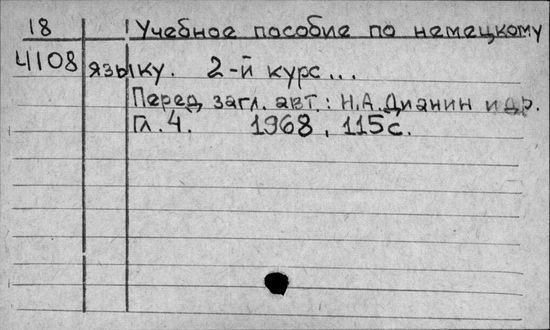 18 Учебное пособие по немецкому
4108 языку. 2-й курс...
Перед загл. авт.: Н.А.Дианин и др.
Гл.4. 1968, 115с.